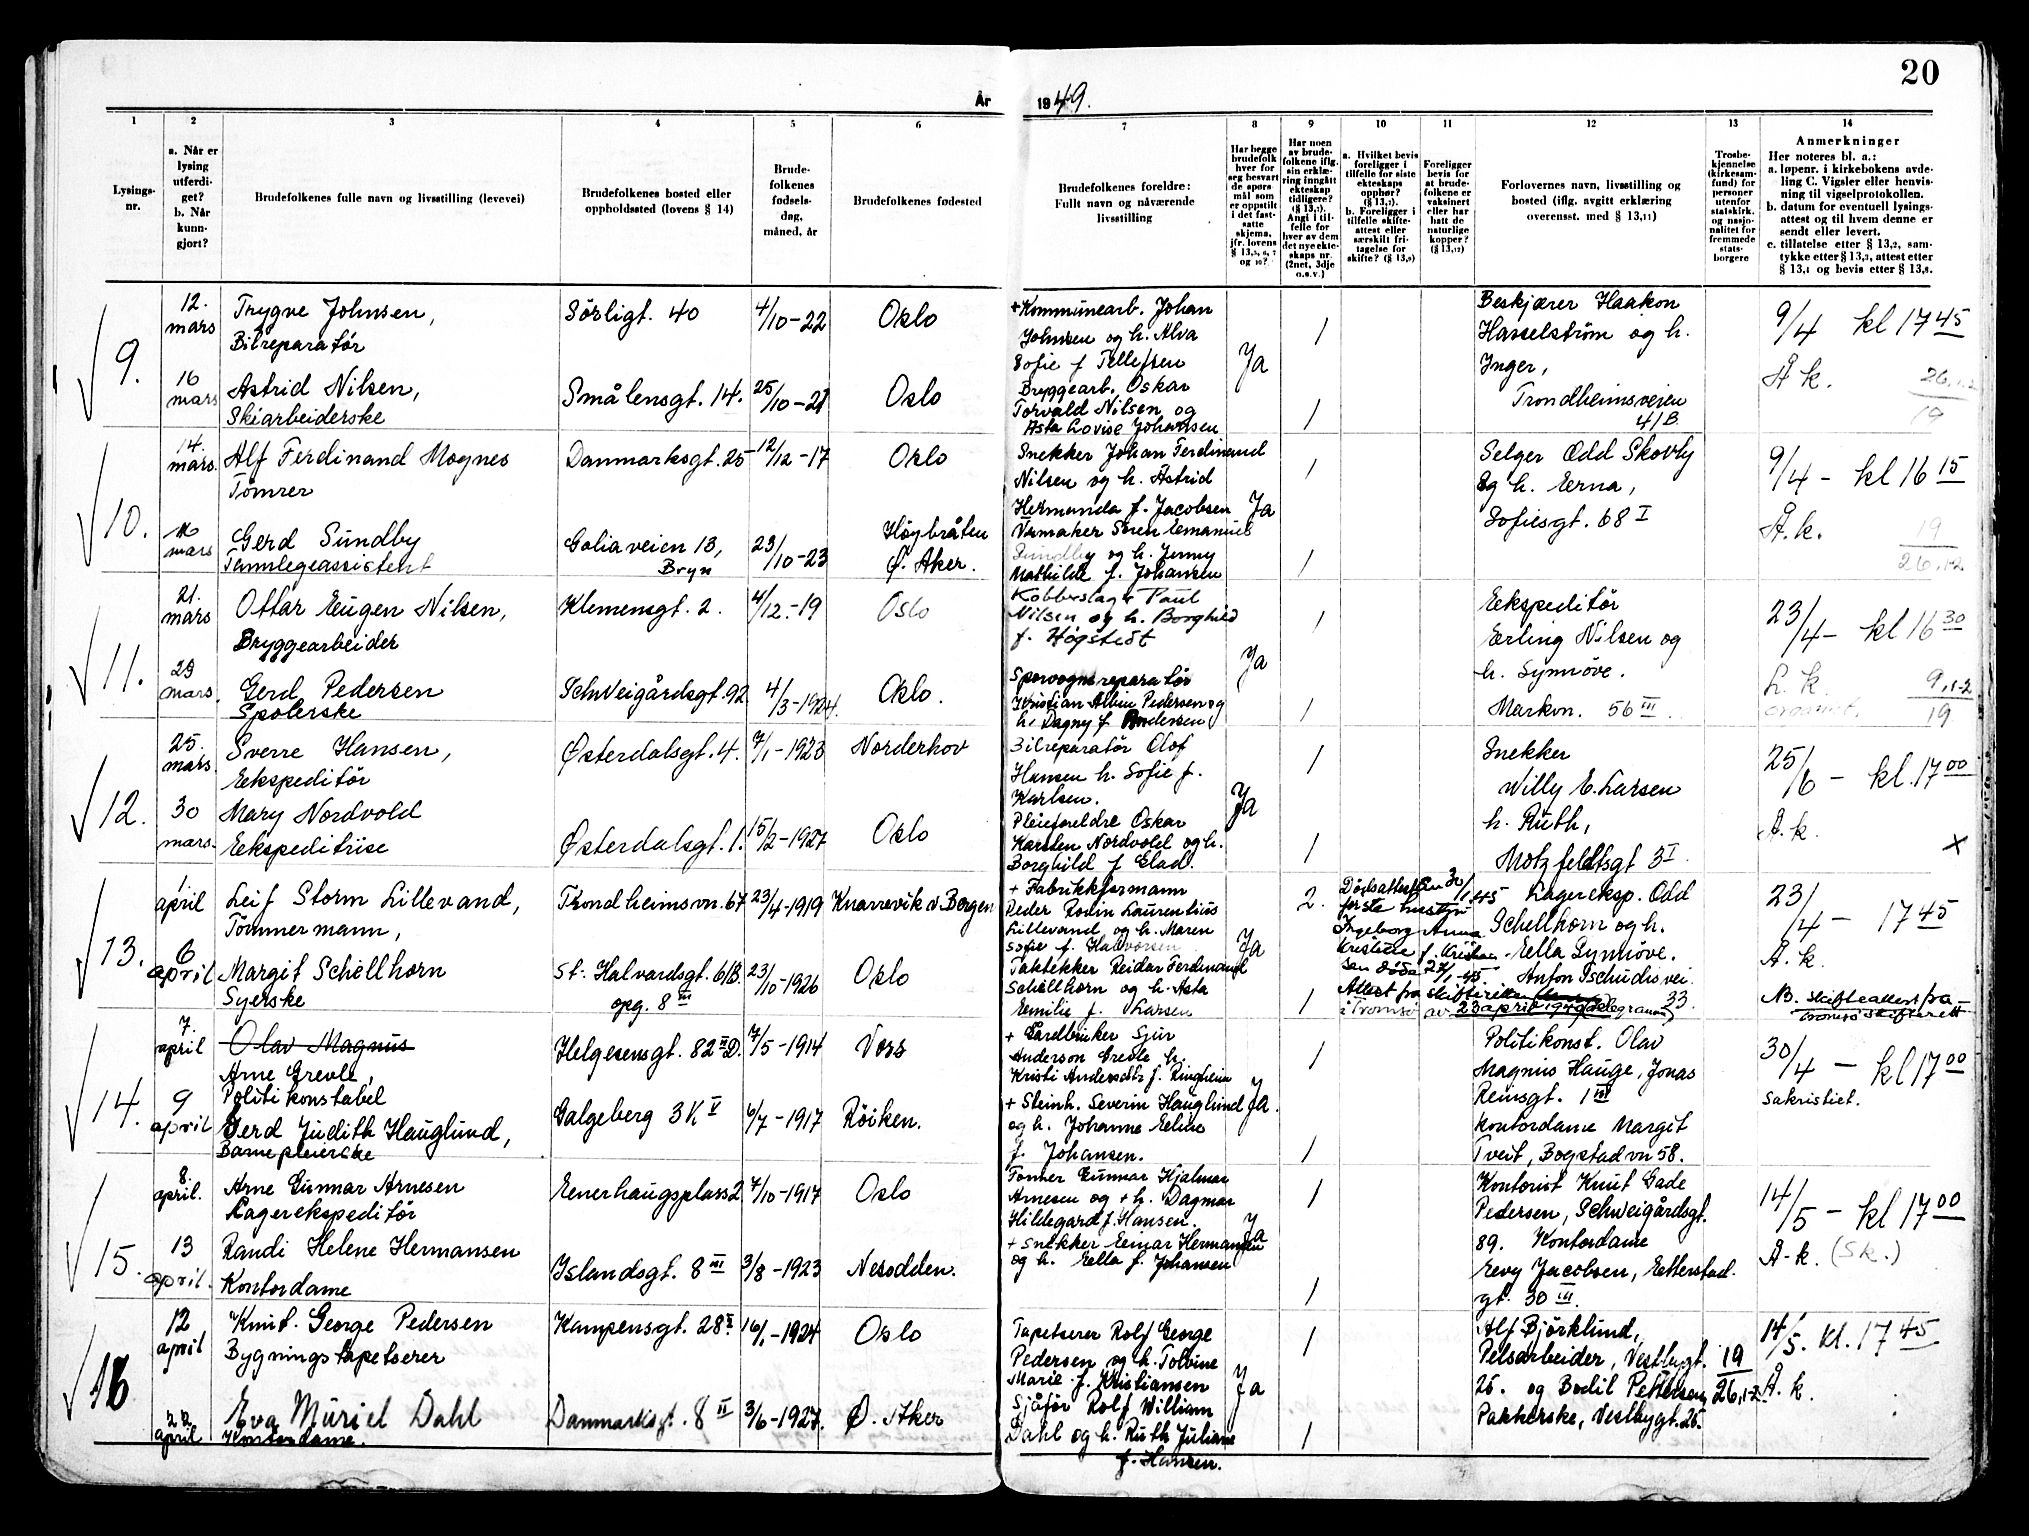 20
År
1949.
1
2
3
4
5
6
7
8
9
10
11
12
13
14
Lysings-
nr.
a. Når er
lysing
utferdi-
get?
b. Når
kunn-
gjort?
Brudefolkenes fulle navn og livsstilling (levevei)
Brudefolkenes bosted eller
oppholdssted (lovens § 14)
Brude-
folkenes
fødsels-
dag,
måned, år
Brudefolkenes fødested
Brudefolkenes foreldre:
Fullt navn og nåværende
livsstilling
Har begge
brudefolk
hver for
seg besvart
de spørs-
mål som
er oppstilt
i det fast-
satte
skjema,
jfr. lovens
§ 13,5, 6, 7
og 10?
Har noen
av brude-
folkene iflg.
sin erklæ-
ring inngått
ekteskap
tidligere?
(§ 13,7).
Angi i til-
felle for
hver av dem
det nye ekte-
skaps nr.
(2net, 3dje
o.s.v.)
a. Hvilket bevis
foreligger i
tilfelle for siste
ekteskaps
opphør?
(§ 13,7).
b. Foreligger i
tilfelle skifte-
attest eller
særskilt fri-
tagelse for
skifte? (§ 13,9)
Foreligger
bevis for
at brude-
folkene er
vaksinert
eller har
hatt de
naturlige
kopper?
(§ 13,12)
Forlovernes navn, livsstilling og
bosted (iflg. avgitt erklæring
overensst. med § 13,11)
Trosbe-
kjennelse
(kirkesam-
fund) for
personer
utenfor
statskirk.
og nasjo-
nalitet for
fremmede
stats-
borgere
Anmerkninger
Her noteres bl. a.:
a. løpenr. i kirkebokens avde-
ling C. Vigsler eller henvis-
ning til vigselprotokollen.
b. datum for eventuell lysings-
attest og til hvem denne er
sendt eller levert.
c. tillatelse etter § 13,2, sam-
tykke etter § 13,3, attest etter
§ 13,4 og bevis etter § 13,8.
9.
12.
mars
Trygve Johnsen,
Bilreparatør
Sörligt. 40
4/10-22
Oslo
+Kommunearb. Johan
Johnsen og h. Alva
Sofie f Tellefsen
1
Ja
Beskjærer Haakon
Hasselstrøm og h.
Inger,
Trondheimsveien
41B.
9/4 kl 17 45
Å k.
26.1-2
19
16
mars
Astrid Nilsen,
Skiarbeiderske
Smålensgt. 14.
25/10-21
Oslo
Bryggearb. Oskar
Torvald Nilsen og
Asta Lovise Johansen
1
10.
14.
mars.
Alf Ferdinand Mognes
Tömrer
Danmarksgt. 25
12/12-17
Oslo
Snekker Johan Ferdinand
Nilsen og h. Astrid
Hermanda f. Jacobsen
1
Ja
Selger Odd Skovly
og h. Erna,
Sofiesgt. 68 I
9/4 - kl 16 15
Å.k.
19
26.1-2
mars
Gerd Sundby
Tannlegeassistent
Goliaveien 13,
Bryn
23/10-23
Høybråten
Ø. Aker.
Urmaker Sören Emanuel
Sundby og h. Jenny
Mathilde f. Johansen
1
11.
21.
mars
Ottar Eugen Nilsen,
Bryggearbeider
Klemensgt. 2.
4/12.-19
Oslo
Kobberslager Paul
Nilsen og h. Borghild
f. Högstedt
1
Ja
Ekspeditör
Erling Nilsen og
h. Synnöve.
Markvn. 56 III
23/4 - kl 16 30
L. k.
organist.
9.1-2
19
23
mars.
Gerd Pedersen
Spolerske
Schweigårdsgt. 92
4/3-1924.
Oslo.
Sporvognsreparatör
Kristian Albin Pedersen og
h. Dagny f Andersen
1
12.
25.
mars.
Sverre Hansen,
Ekspeditör
Østerdalsgt. 4.
7/1-1923
Norderhov
Bilreparatör Olof
Hansen h. Sofie f.
Karlsen.
1
Ja
Snekker
Willy E. Larsen
h. Ruth,
Motzfeldtsgt 3 I
25/6 - kl. 17 00
Å.k.
x
30
mars.
Mary Nordvold
Ekspeditrise
Østerdalsgt. 1.
15/2-1927
Oslo
Pleieforeldre Oskar
Karsten Nordvold og h.
Borghild f Elad.
1
13.
1
april
Leif Storm Lillevand,
Tömmermann,
Trondheimsvn. 67
23/4-1919
Knarrevik v. Bergen
+ Fabrikkformann
Peder Rodin Laurentius
Lillevand, og h. Maren
Sofie f. Halvorsen
2.
Ja
Dødsattest
første hustru
Ingeborg Anna
Kristine f. Kristian-
sen død 27/1-45.
Attest fra skifteretten
i Tromsö av 23 april 1949 (telegram)
Lagereksp. Odd
Schellhorn og h.
Ella Synnöve.
Anton Tschudisvei
33.
23/4 - 17 45
Å.k.
NB. skifteattest fra
Tromsö skifterett
6
april
Margit Schellhorn
Syerske
St. Halvardsgt. 61B.
opg. 8 III
23/10-1926
Oslo
Taktekker Reidar Ferdinand
Schellhorn og h. Asta
Emilie f. Larsen
1
14.
7.
april
Olav Magnus
Arne Grevle,
Politikonstabel
Helgesensgt. 82 II D.
7/5-1914
Voss
+ Gardbruker Sjur
Anderson Grevle h.
Kristi Andersdtr f. Ringheim
1
Ja.
Politikonst. Olav
Magnus Hauge, Jonas
Reinsgt. 1 III
Kontordame Margit
Tveit, Bogstadvn 58.
30/4 - kl 17 00
Sakristiet.
9
april
Gerd Judith Hauglund,
Barnepleierske
Galgeberg 3K V
6/7-1917
Röiken.
+ Steinh. Severin Hauglund
og h. Johanne Eline
f. Johansen.
1
15.
8.
april.
Arne Gunnar Arnesen
Lagerekspeditör
Enerhaugsplass 2
7/10-1917
Oslo
Former Gunnar Hjalmar
Arnesen og + h. Dagmar
Hildegard f. Hansen.
1
Ja
Kontorist Knut Gade
Pedersen, Schweigårdsgt.
89. Kontordame
Evy Jacobsen, Etterstad-
gt. 30 III.
14/5 - kl 17 00
Å-k. (Sk.)
13
april.
Randi Helene Hermansen
Kontordame
Islandsgt. 8 III
3/8-1923
Nesodden.
+ Snekker Einar Hermansen
og h. Ella f. Johansen
1
16
12
april
Knut. George Pedersen
Bygningstapetserer
Kampensgt. 28
16/1.-1924
Oslo
Tapetserer Rolf George
Pedersen og h. Tolvine
Marie f. Kristiansen
1
Ja
Alf Björklund,
Pelsarbeider, Vestbygt.
25. og Bodil Pettersen
Pakkerske, Vestbygt. 25.
19
26.1-2.
14/5. kl. 17 45
Å.k.
22
april
Eva Muriel Dahl
Kontordame.
Danmarksgt. 8 II
3/6-1927.
Ø. Aker
Sjåför Rolf William
Dahl og h. Ruth Juliane
f. Hansen.
1